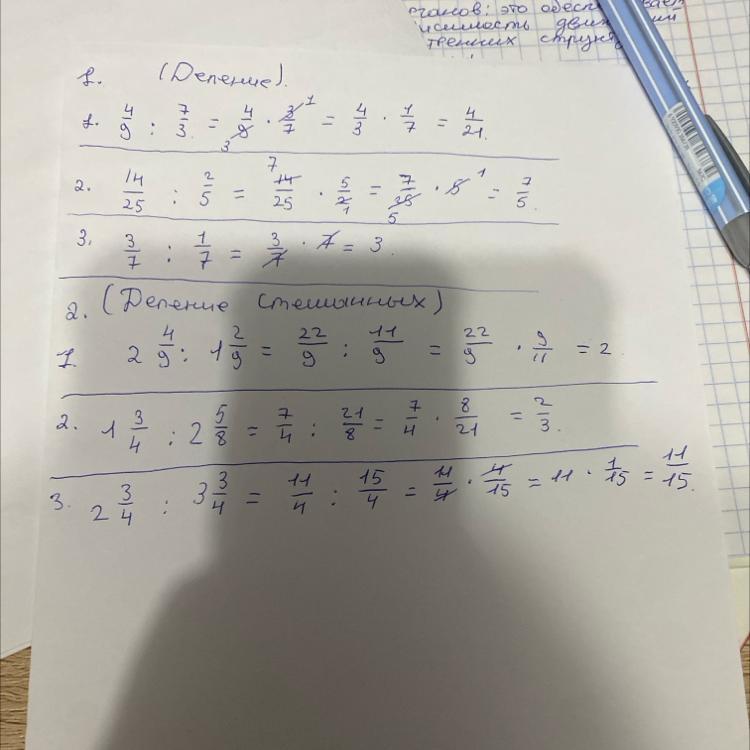 рганов: это обесп
висимость движ
тренних структ
1. (Деление).
1. 4/9 : 7/3 = 4/9 3 · 3/7 1 = 4/3 · 1/7 = 4/21.
2. 14/25 : 2/5 = 7 14/25 · 5/2 1 = 7/25 5 · 5 1 = 7/5.
3. 3/7 : 1/7 = 3/7 · 7 = 3.
2. (Деление смешанных)
1. 2 4/9 : 1 2/9 = 22/9 : 11/9 = 22/9 · 9/11 = 2
2. 1 3/4 : 2 5/8 = 7/4 : 21/8 = 7/4 · 8/21 = 2/3.
3. 2 3/4 : 3 3/4 = 11/4 : 15/4 = 11/4 · 4/15 = 11 · 1/15 = 11/15.